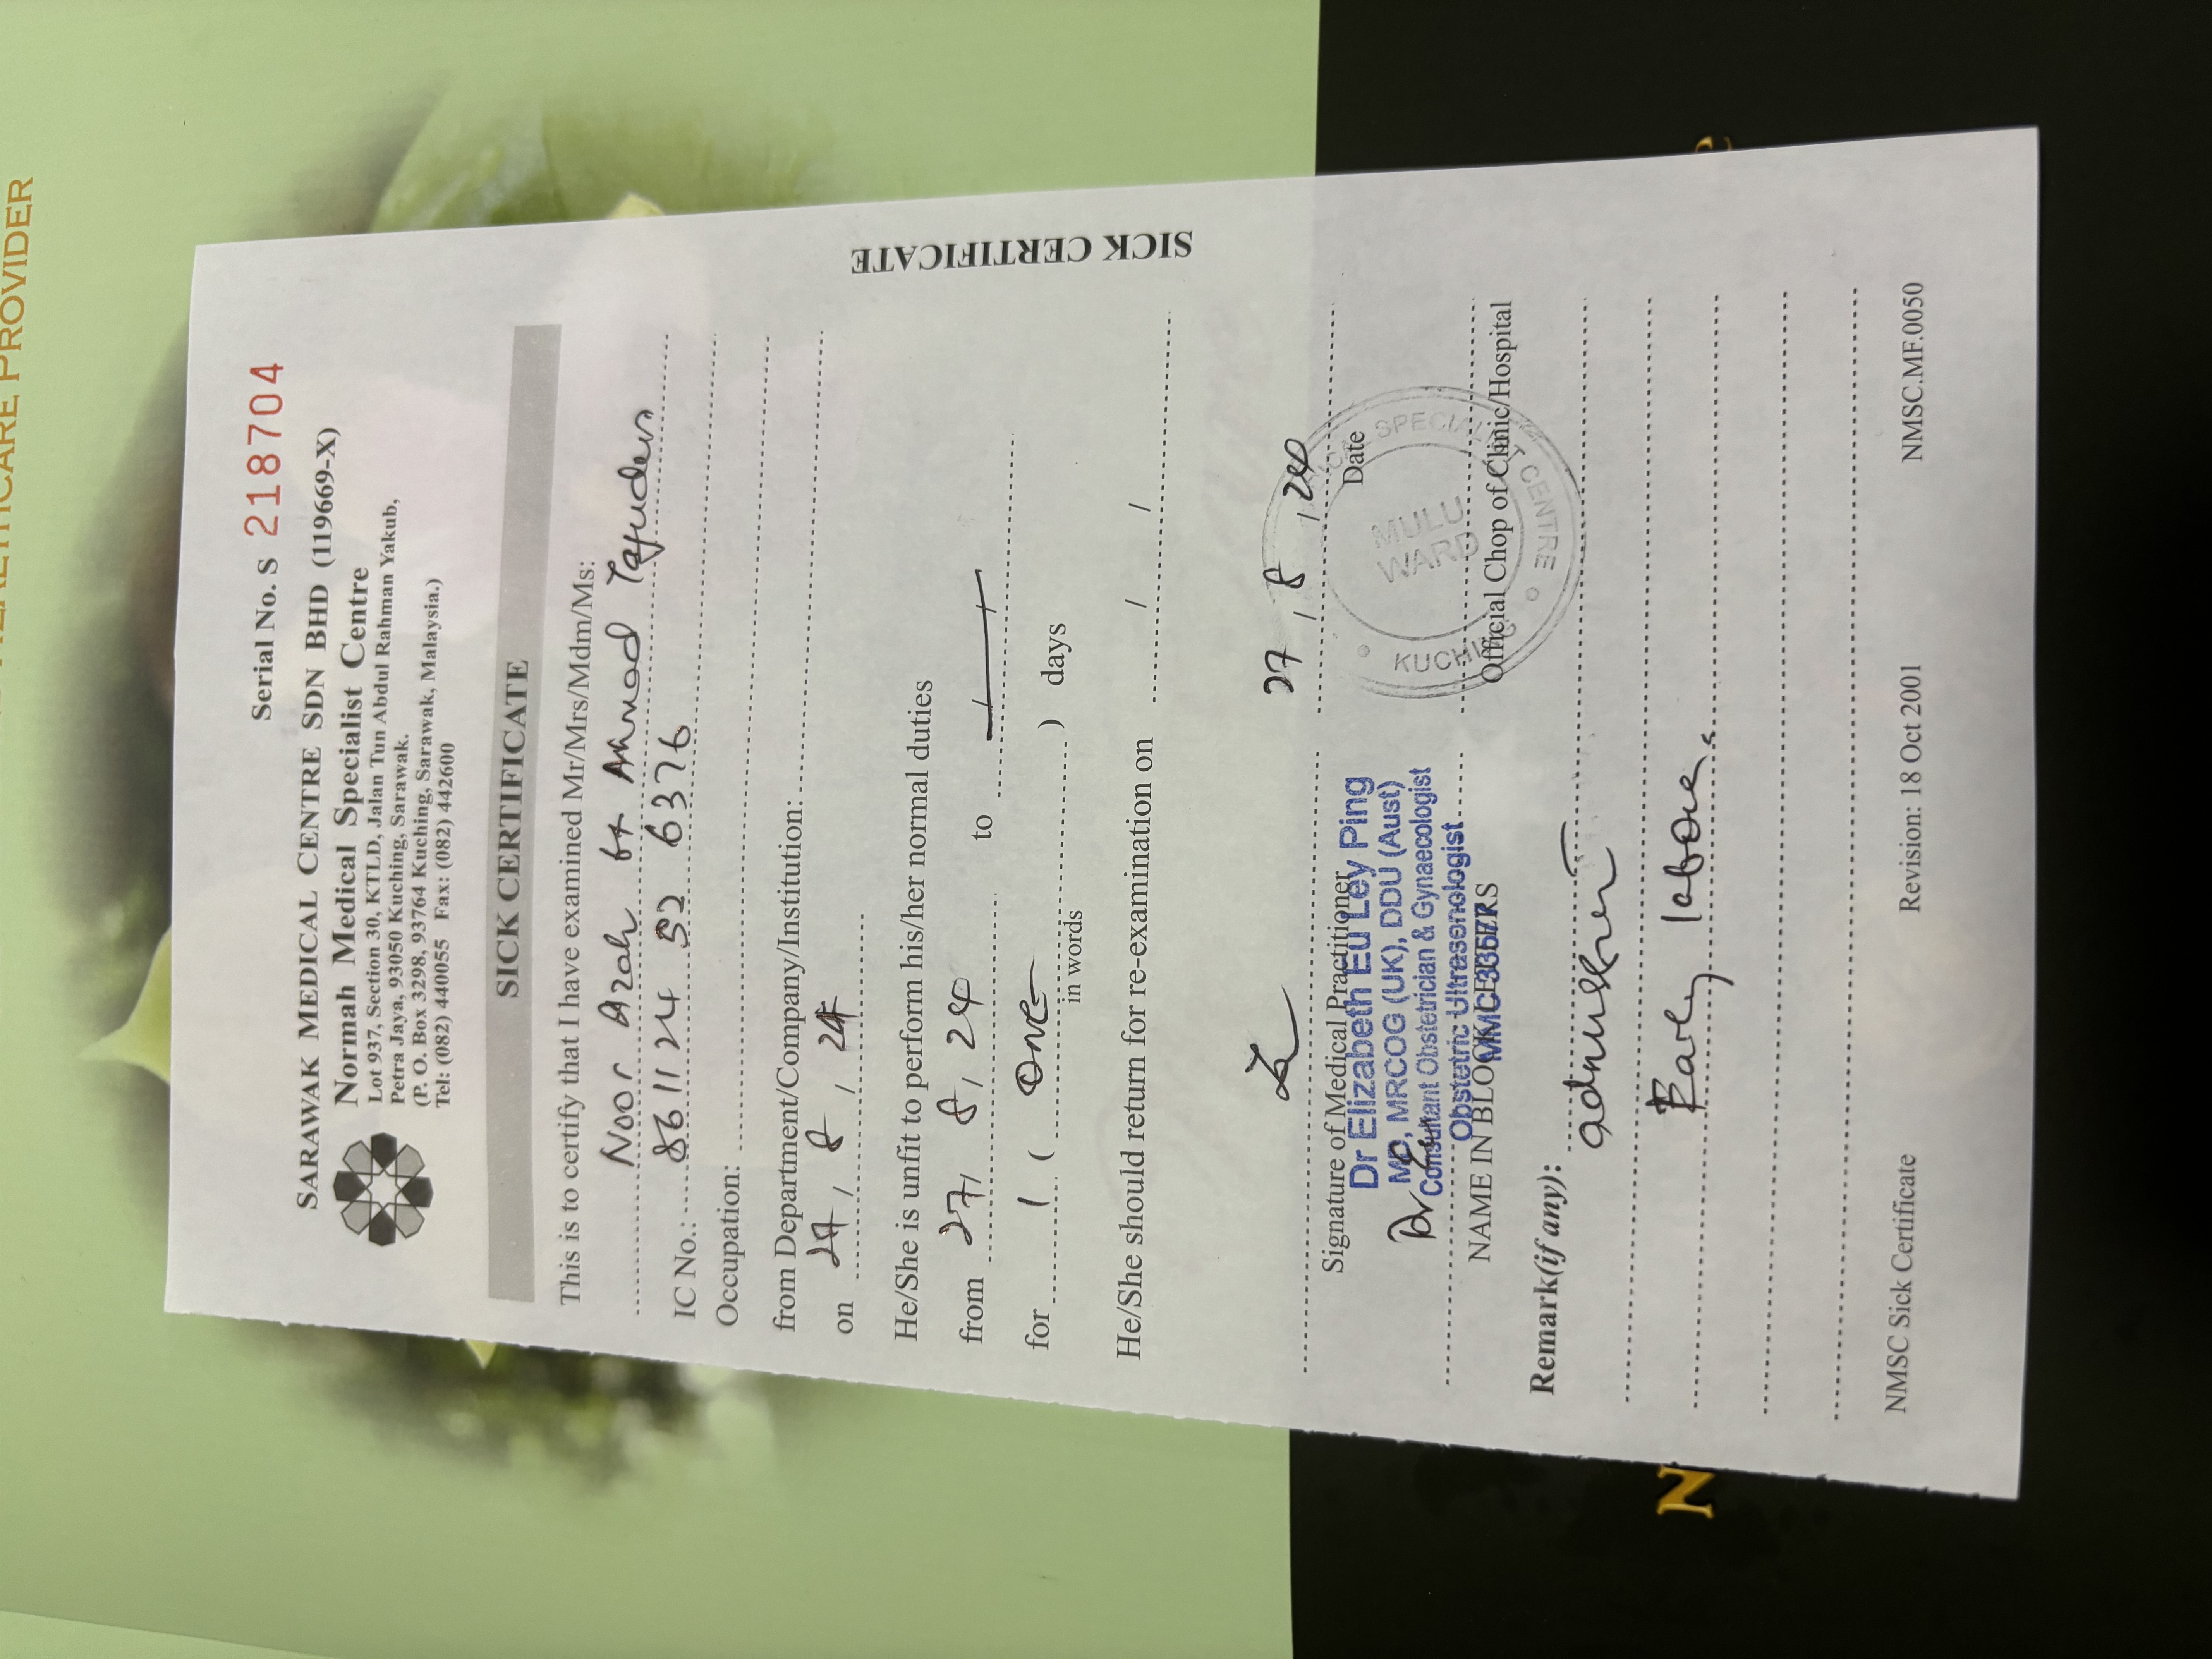 HEALTHCARE PROVIDER
Serial No. S 218704
SARAWAK MEDICAL CENTRE SDN BHD (119669-X)
Normah Medical Specialist Centre
Lot 937, Section 30, KTLD, Jalan Tun Abdul Rahman Yakub,
Petra Jaya, 93050 Kuching, Sarawak.
(P. O. Box 3298, 93764 Kuching, Sarawak, Malaysia.)
Tel: (082) 440055 Fax: (082) 442600
SICK CERTIFICATE
This is to certify that I have examined Mr/Mrs/Mdm/Ms:
Noor Azah bt Ahmad Tajudin
IC No.: 861124 52 6376
Occupation:
from Department/Company/Institution:
on 27 / 8 / 24
He/She is unfit to perform his/her normal duties
from 27 / 8 / 24 to / /
for 1 ( one ) days
in words
He/She should return for re-examination on / /
SICK CERTIFICATE
27 / 8 / 24
Signature of Medical Practitioner
Date
Dr Elizabeth Eu Ley Ping
MD, MRCOG (UK), DDU (Aust)
Dr Eu
Consultant Obstetrician & Gynaecologist
Obstetric Ultrasonologist
MMC 33577
NAME IN BLOCK LETTERS
MULU WARD
SPECIALIST CENTRE
KUCHING
Official Chop of Clinic/Hospital
Remark(if any):
admission
Early labour.
N
e
NMSC Sick Certificate Revision: 18 Oct 2001 NMSC.MF.0050